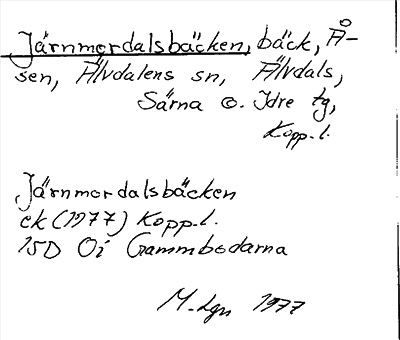 Järnmordalsbäcken, bäck, Å-
sen, Älvdalens sn, Älvdals,
Särna o. Idre tg,
Kopp. l.
Järnmordalsbäcken
ek (1977) Kopp. l.
15D 0i Gammbodarna
M-Lgn 1977